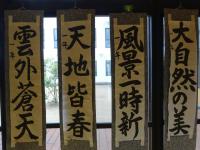 大自然の美
風景一時新
天地皆春
雲外蒼天